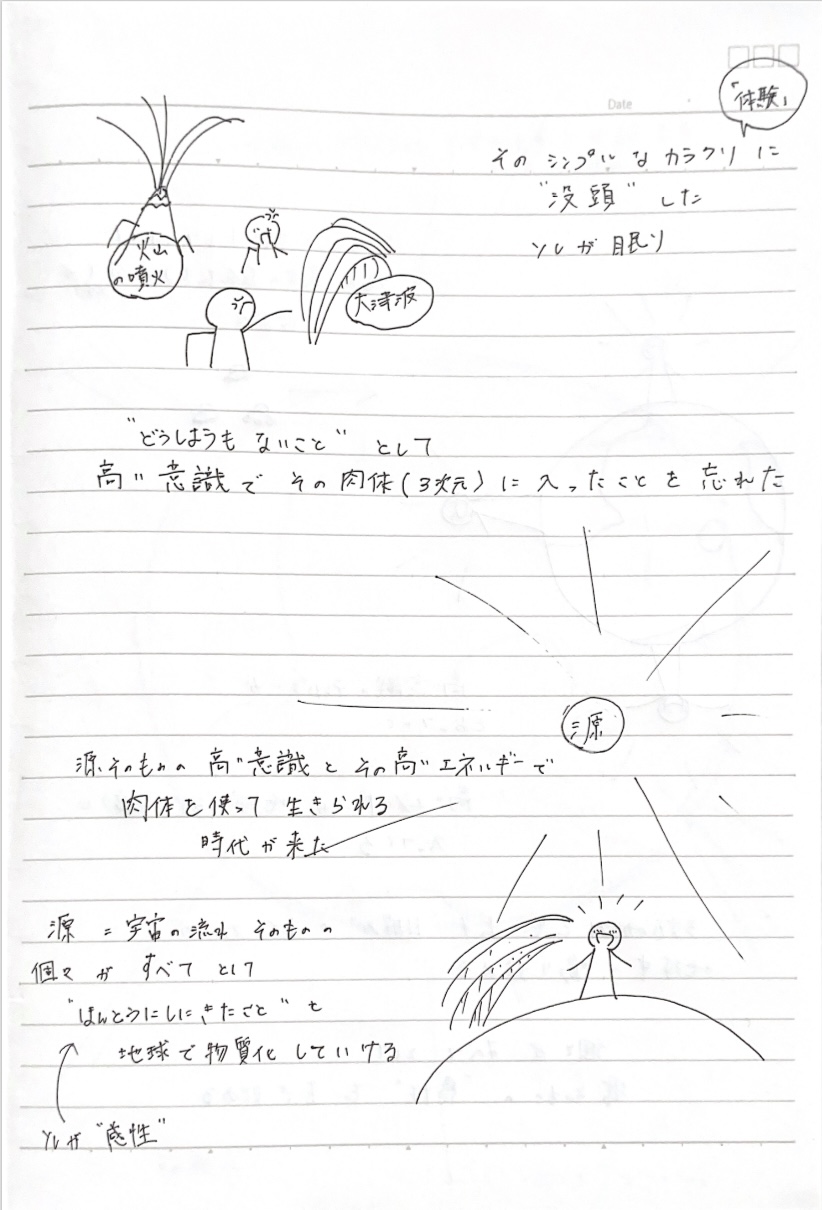 Date
「体験」
その シンプル な カラクリ に
"没頭" した
ソレが 眠り
火山
の噴火
大津波
"どうしようも ないこと" として
高い 意識で その 肉体(3次元) に 入ったことを 忘れた
源
源そのものの 高い意識と その高いエネルギーで
肉体を使って 生きられる
時代が来た
源 = 宇宙の流れ そのものの
個々が すべて として
"ほんとうにしにきたこと" を
地球で物質化 していける
ソレが "感性"